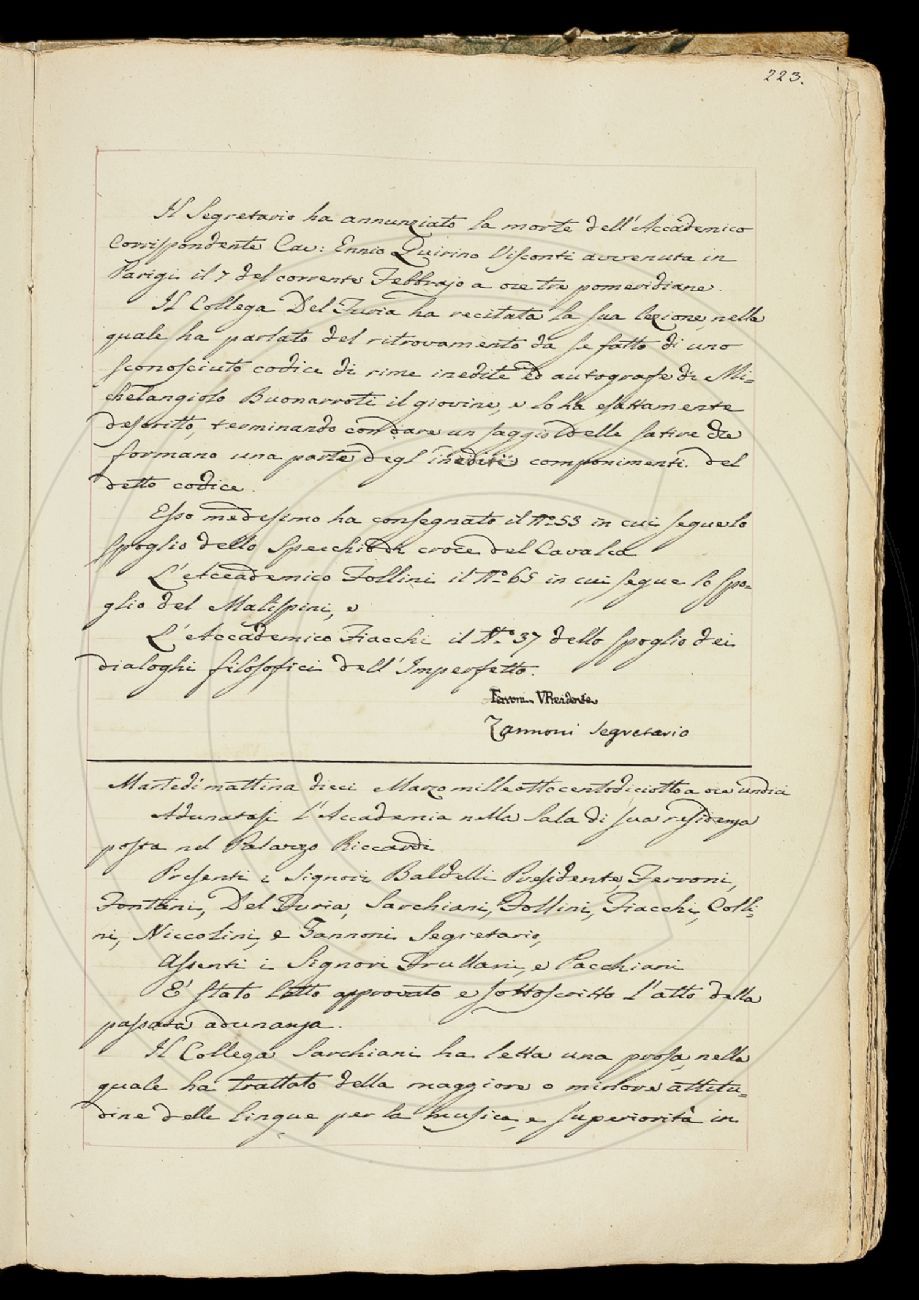 223.
Il Segretario ha annunziato la morte dell'Accademico
Corrispondente Cav: Ennio Quirino Visconti avvenuta in
Parigi il 7 del corrente Febbrajo a ore tre pomeridiane.
Il Collega Del Furia ha recitata la sua lezione, nella
quale ha parlato del ritrovamento da se fatto di uno
sconosciuto codice di rime inedite ed autografe di Mi=
chelangiolo Buonarroti il giovine, e lo ha esattamente
descritto, terminando con dare un saggio delle satire che
formano una parte degl'inediti componimenti del
detto codice.
Esso medesimo ha consegnato il N.° 53 in cui segue lo
spoglio dello Specchio di croce del Cavalca
L'Accademico Follini il N.° 65 in cui segue lo spo=
glio del Malispini, e
L'Accademico Fiacchi il N.° 37 dello spoglio dei
dialoghi filosofici dell'Imperfetto.
Ferroni VPresidente
Zannoni Segretario
Martedì mattina dieci Marzo milleottocentodiciotto a ore undici
Adunatasi l'Accademia nella Sala di sua residenza
posta nel Palazzo Riccardi
Presenti i Signori Baldelli Presidente, Ferroni,
Fontani, Del Furia, Sarchiani, Follini, Fiacchi, Colli=
ni, Niccolini, e Zannoni Segretario,
Assenti i Signori Brullani, e Pacchiani
E' stato letto approvato e sottoscritto l'atto della
passata adunanza.
Il Collega Sarchiani ha letta una prosa, nella
quale ha trattato della maggiore o minore attitu=
dine delle lingue per la musica, e superiorità in